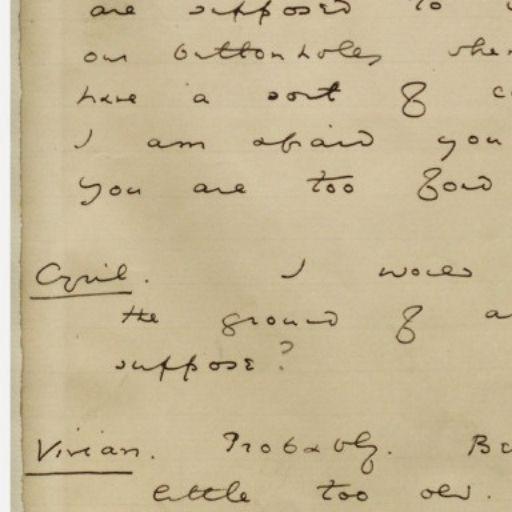 are supposed to
our buttonholes when
have a sort of
I am afraid you
you are too fond
Cyril. I would
the ground of
suppose?
Vivian. Probably.
little too old.